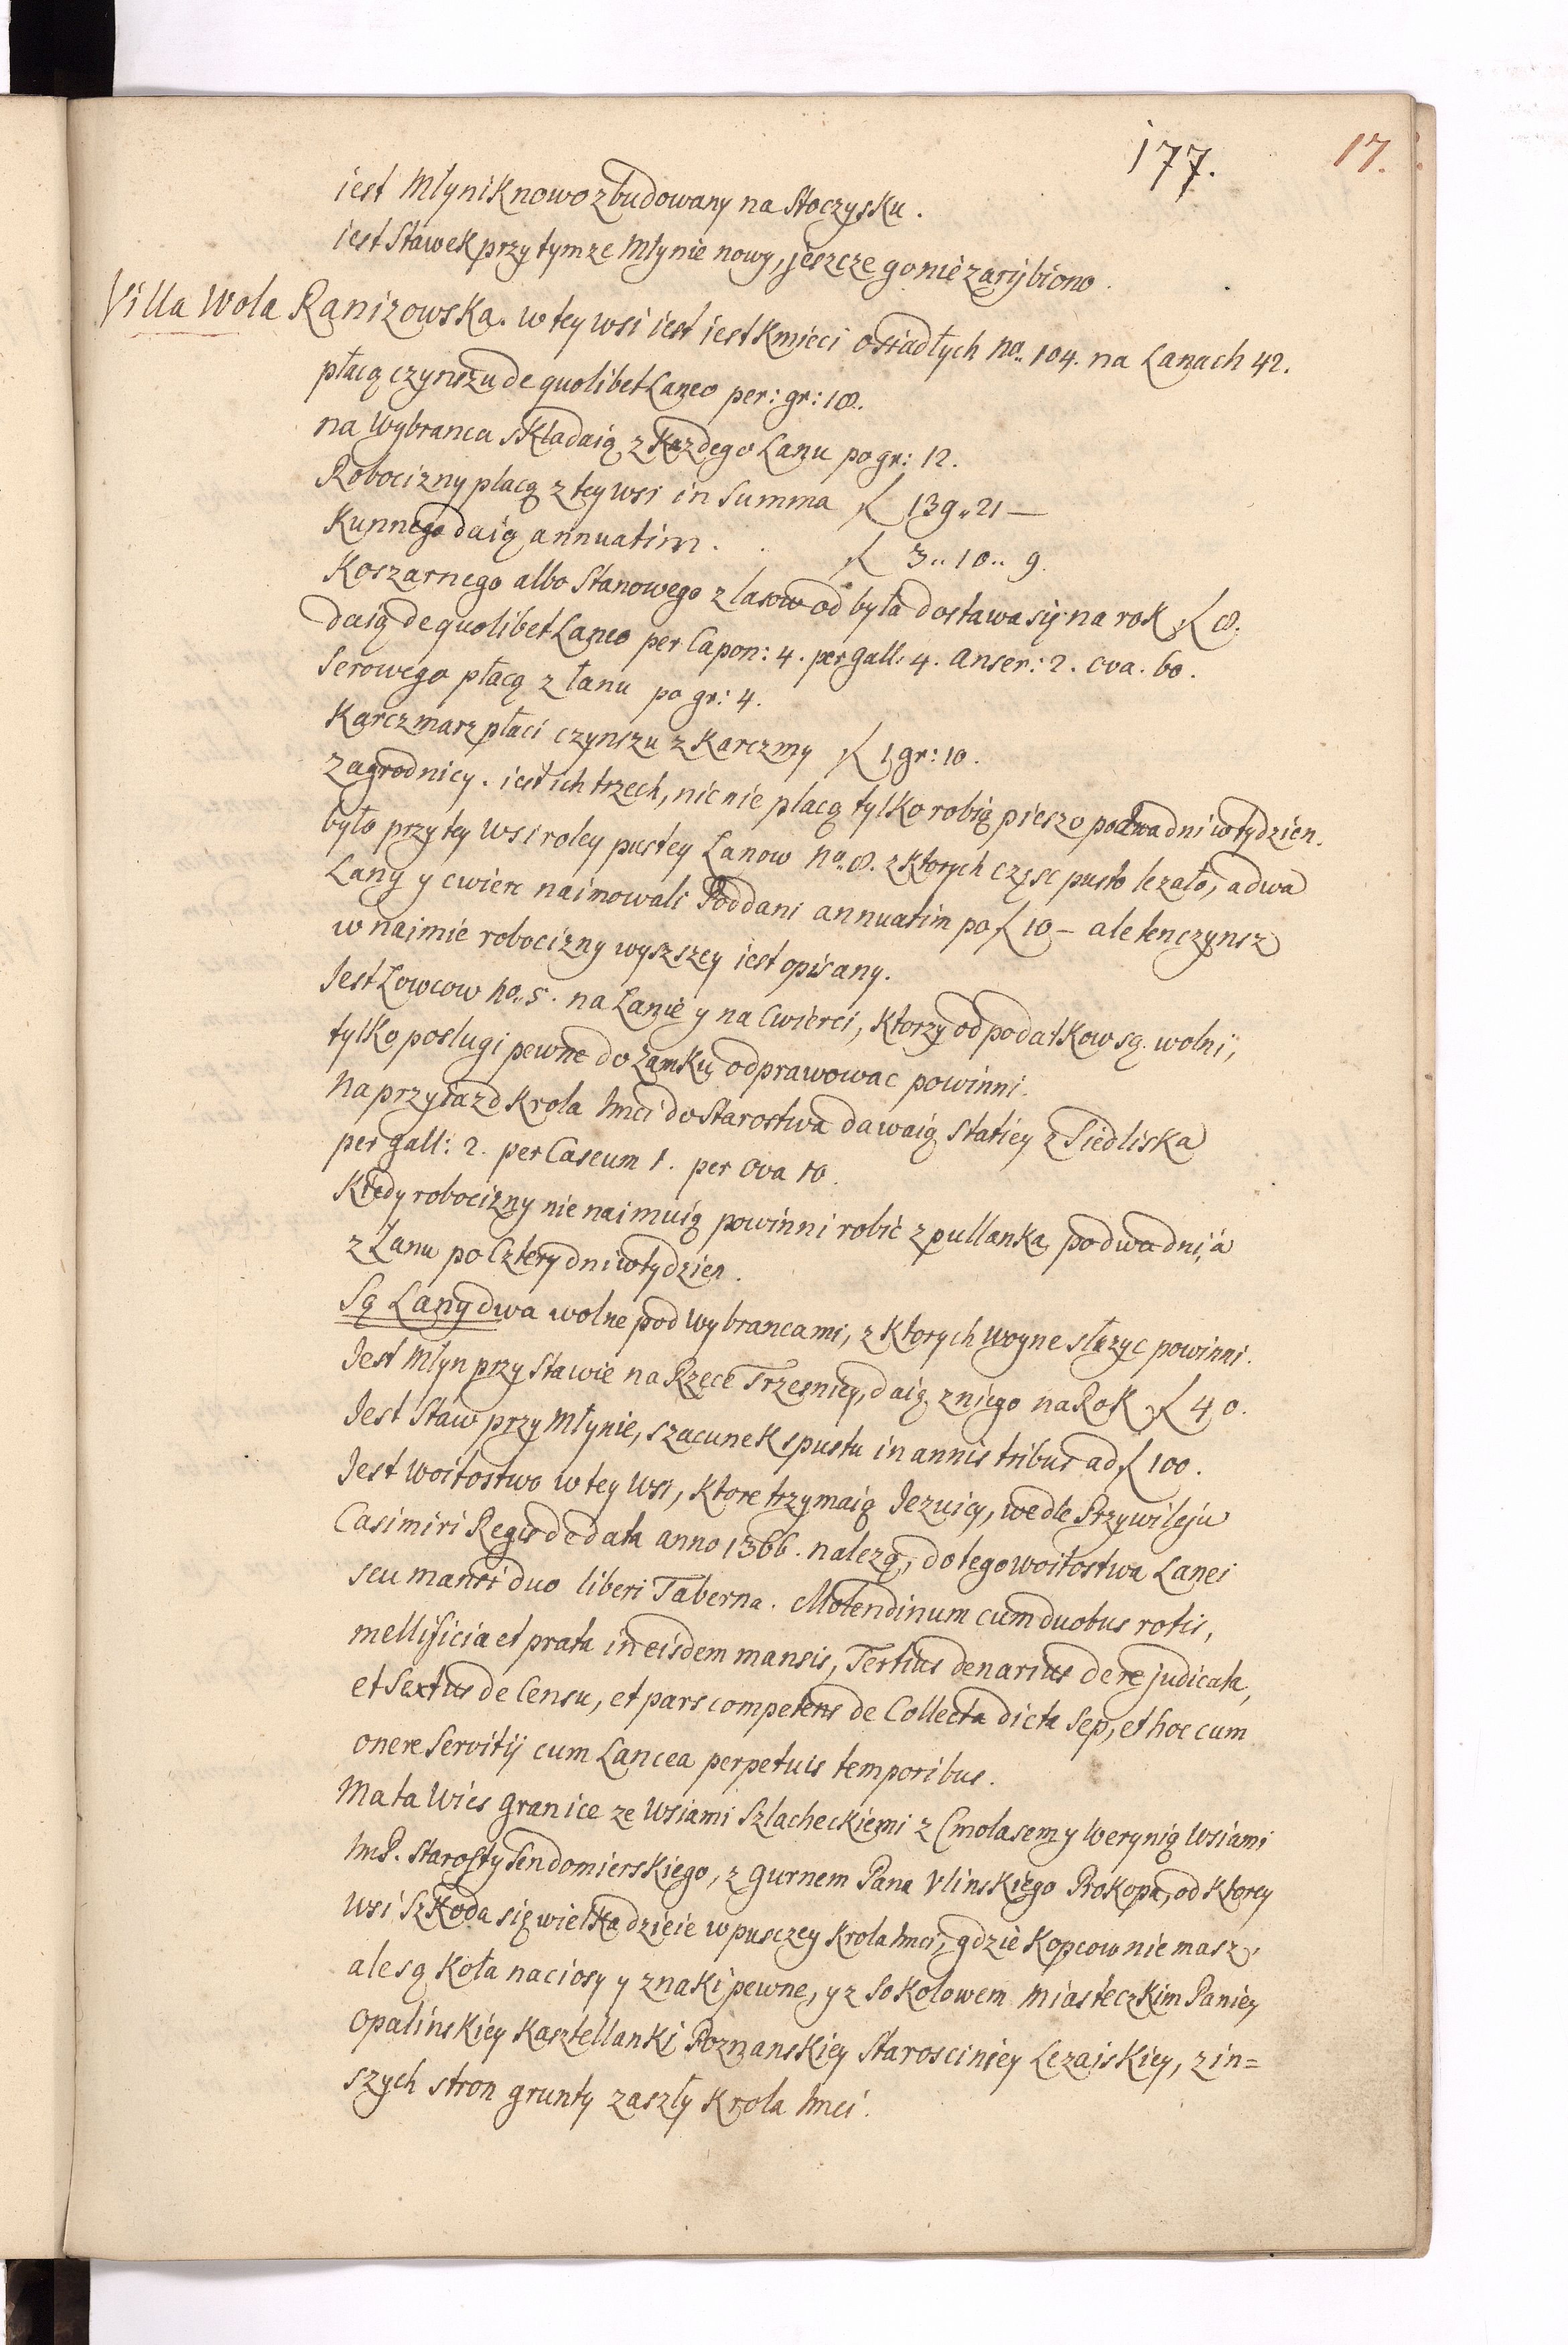 177.
17.
iest Młynik nowo zbudowany na Stoczysku.
iest Stawek przy tymze Młynie nowy, jeszcze go nie zarybiono.
Villa Wola Ranizowska. w tey wsi iest iest Kmieci osiadłych no. 104. na Lanach 42.
płacą czynszu de quolibet Laneo per: gr: 18.
na Wybranca składaią z Kazdego Lanu po gr: 12.
Robocizny placą z tey wsi in Summa f 139 „ 21 —
Kunnego daią annuatim . . f 3 „ 10 „ 9.
Koszarnego albo Stanowego z lasow od bydła dostawa się na rok f 8.
Daią de quolibet Laneo per Capon: 4. per gall: 4. Anser: 2. Ova. 60.
Serowego płacą z łanu po gr: 4.
Karczmarz płaci czynszu z Karczmy f 1 gr: 10.
Zagrodnicy. iest ich trzech, nic nie placą tylko robią pieszo po dwa dni w tydzien.
było przy tey Wsi roley pustey Lanow no. 8. z ktorych częsc pusto lezało, a dwa
Lany y cwierc naimowali Poddani annuatim po f 10 — ale ten czynsz
w naimie robocizny wyszszey iest opisany.
Jest Lowcow no. 5. na Lanie y na Cwierci, Ktorzy od podatkow są wolni,
tylko poslugi pewne do Zamku odprawowac powinni.
Na przyiazd Krola Jmci do Starostwa dawaią Statiey z Siedliska
per gall: 2. per Caseum 1. per Ova 10.
Kiedy robocizny nie naimuią powinni robić z pullanka po dwa dni, a
z Lanu po Cztery dni w tydzien.
Są Lany dwa wolne pod Wybrancami, z Ktorych Woyne słuzyc powinni.
Jest Młyn przy Stawie na Rzece Trzesnicy, daią z niego na Rok f 40.
Jest Staw przy Młynie, szacunek spustu in annis tribus ad f 100.
Jest Woitostwo w tey Wsi, Ktore trzymaią Jezuicy, wedle Przywileju
Casimiri Regis de data anno 1366. nalezą, do tego woitostwa Lanei
seu mansi duo liberi Taberna. Molendinum cum duobus rotis,
mellificia et prata in eisdem mansis, Tertius denarius de re judicata,
et Sextus de Censu, et pars competens de Collecta dicta Sep, et hoc cum
onere Servitij cum Lancea perpetuis temporibus.
Ma ta Wies granice ze Wsiami Szlacheckiemi z Cmolasem y Werynią Wsiami
JmP. Starosty Sendomierskiego, z Gurnem Pana Vlinskiego Prokopa, od Ktorey
Wsi Szkoda się wielka dzieie w puszczy Krola Jmci, gdzie Kopcow nie masz,
ale są Koła naciosy y znaki pewne, y z Sokolowem Miasteczkim Paniey
Opalinskiey Kasztellanki Poznanskiey Starosciniey Lezaiskiey, z in=
szych stron grunty zaszły Krola Jmci.